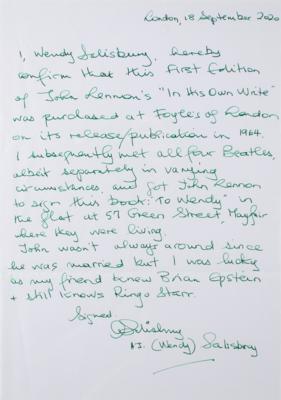 London, 18 September 2020
I, Wendy Salisbury, hereby
confirm that this First Edition
of John Lennon's "In His Own Write"
was purchased at Foyles of London
on its release/publication in 1964.
I subsequently met all four Beatles,
albeit separately in varying
circumstances, and got John Lennon
to sign this book: "To Wendy" in
the flat at 57 Green Street, Mayfair
where they were living.
John wasn't always around since
he was married but I was lucky
as my friend knew Brian Epstein
+ still knows Ringo Starr.
Signed
Salisbury
(Wendy) Salisbury